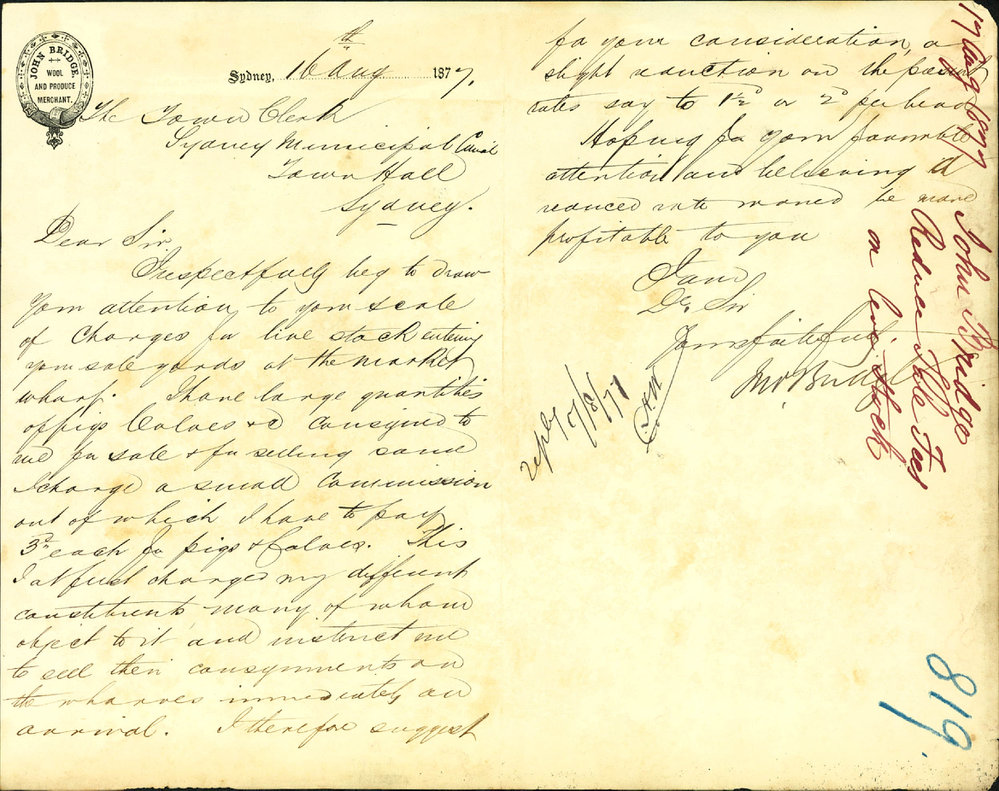 JOHN BRIDGE.
WOOL
AND PRODUCE
MERCHANT.
Sydney, 16th Aug 1877,
The Town Clerk
Sydney Municipal Council
Town Hall
Sydney.
Dear Sir
I respectfully beg to draw
your attention to your scale
of charges for live stock entering
your sale yards at the market
wharf. I have large quantities
of pigs Calves &c consigned to
me for sale & for selling same
I charge a small commission
out of which I have to pay
3d each for pigs & Calves. This
I at first charged my different
constituents many of whom
object to it and instruct me
to sell their consignments on
the wharves immediately on
arrival. I therefore suggest
for your consideration, a
slight reduction on the present
rates say to 1½d or 2d per head
Hoping for your favorable
attention and believing a
reduced rate would be more
profitable to you
I am
Dr. Sir
Yours faithfully
Jno Bridge
17/8/77
17 Aug 1877
John Bridge
Reduce Fees
on live stock
819.